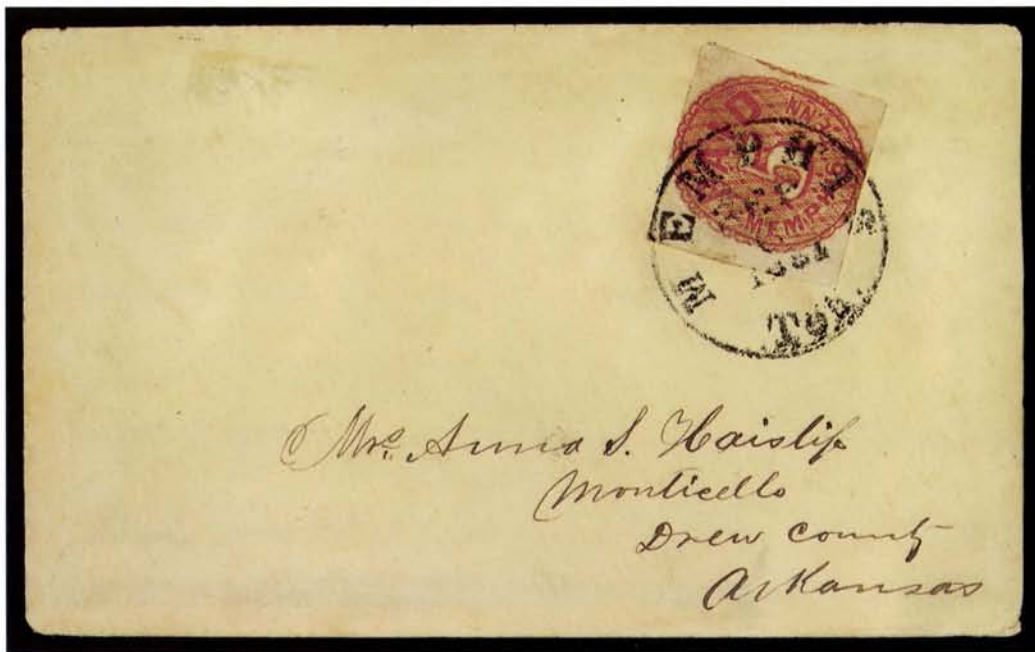 PAID
5
MEMPHIS
MEMPHIS
1861
Mrs. Anna S. Haislip
Monticello
Drew County
Arkansas